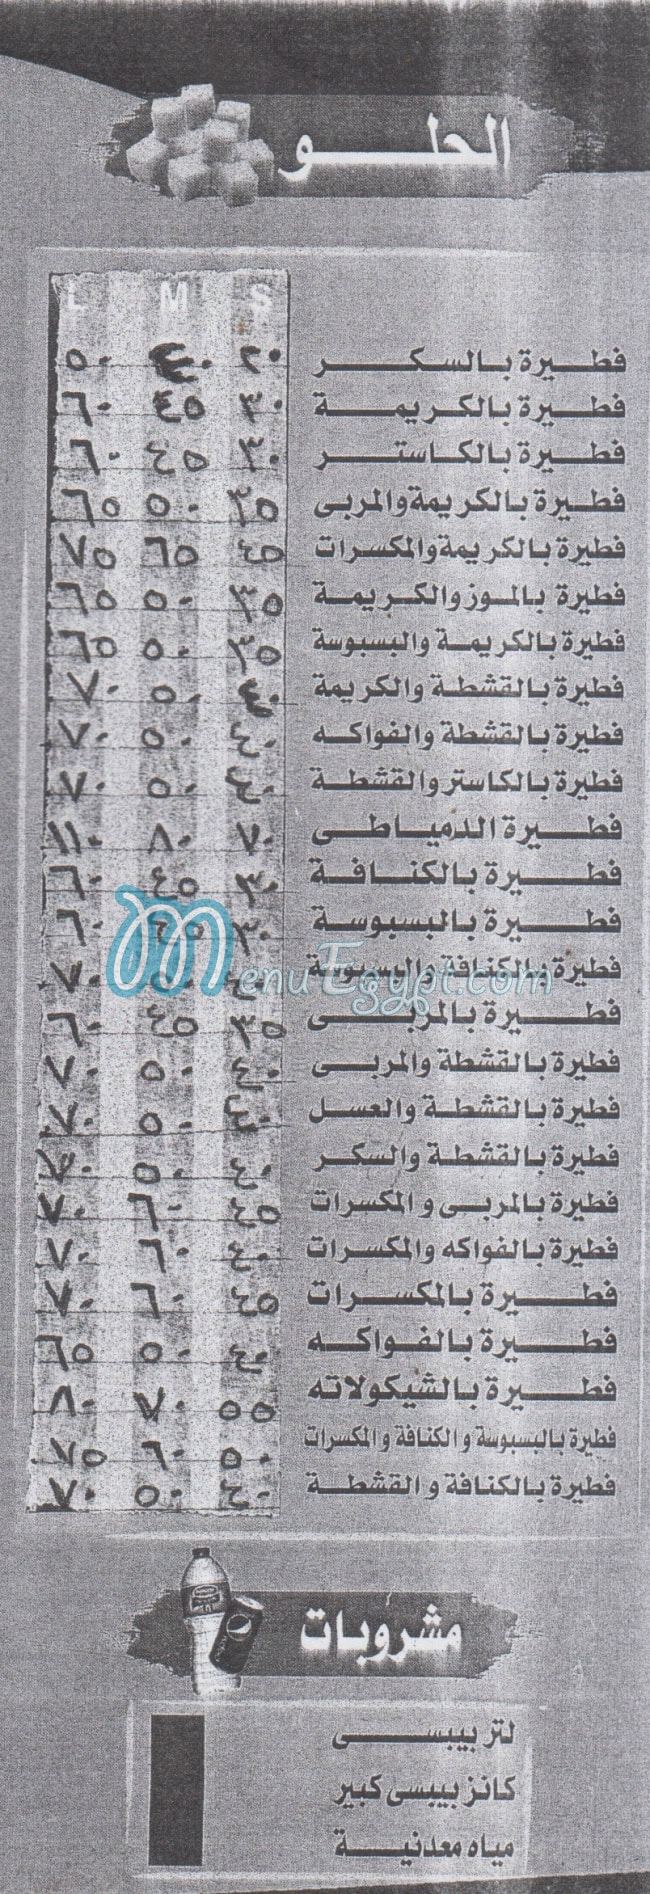 الحلو
S M L
فطيرة بالسكر ٢٠ ٤٠ ٥٠
فطيرة بالكريمة ٣٠ ٤٥ ٦٠
فطيرة بالكاستر ٣٠ ٤٥ ٦٠
فطيرة بالكريمة والمربى ٣٥ ٥٠ ٦٥
فطيرة بالكريمة والمكسرات ٤٥ ٦٥ ٧٥
فطيرة بالموز والكريمة ٣٥ ٥٠ ٦٥
فطيرة بالكريمة والبسبوسة ٣٥ ٥٠ ٦٥
فطيرة بالقشطة والكريمة ٤٠ ٥٠ ٧٠
فطيرة بالقشطة والفواكه ٤٠ ٥٠ ٧٠
فطيرة بالكاستر والقشطة ٤٠ ٥٠ ٧٠
فطيرة الدمياطى ٧٠ ٨٠ ١١٠
فطيرة بالكنافة ٣٠ ٤٥ ٦٠
فطيرة بالبسبوسة ٣٠ ٦٠
فطيرة بالكنافة والبسبوسة ٤٠ ٥٠ ٧٠
فطيرة بالمربى ٣٥ ٤٥ ٦٠
فطيرة بالقشطة والمربى ٤٠ ٥٠ ٧٠
فطيرة بالقشطة والعسل ٤٠ ٥٠ ٧٠
فطيرة بالقشطة والسكر ٤٠ ٥٠ ٧٠
فطيرة بالمربى والمكسرات ٤٥ ٦٠ ٧٠
فطيرة بالفواكه والمكسرات ٤٠ ٦٠ ٧٠
فطيرة بالمكسرات ٤٥ ٦٠ ٧٠
فطيرة بالفواكه ٤٠ ٥٠ ٦٥
فطيرة بالشيكولاته ٥٥ ٧٠ ٨٠
فطيرة بالبسبوسة والكنافة والمكسرات ٥٠ ٦٠ ٧٥
فطيرة بالكنافة والقشطة ٤٠ ٥٠ ٧٠
MenuEgypt.com
مشروبات
لتر بيبسى
كانز بيبسى كبير
مياه معدنية